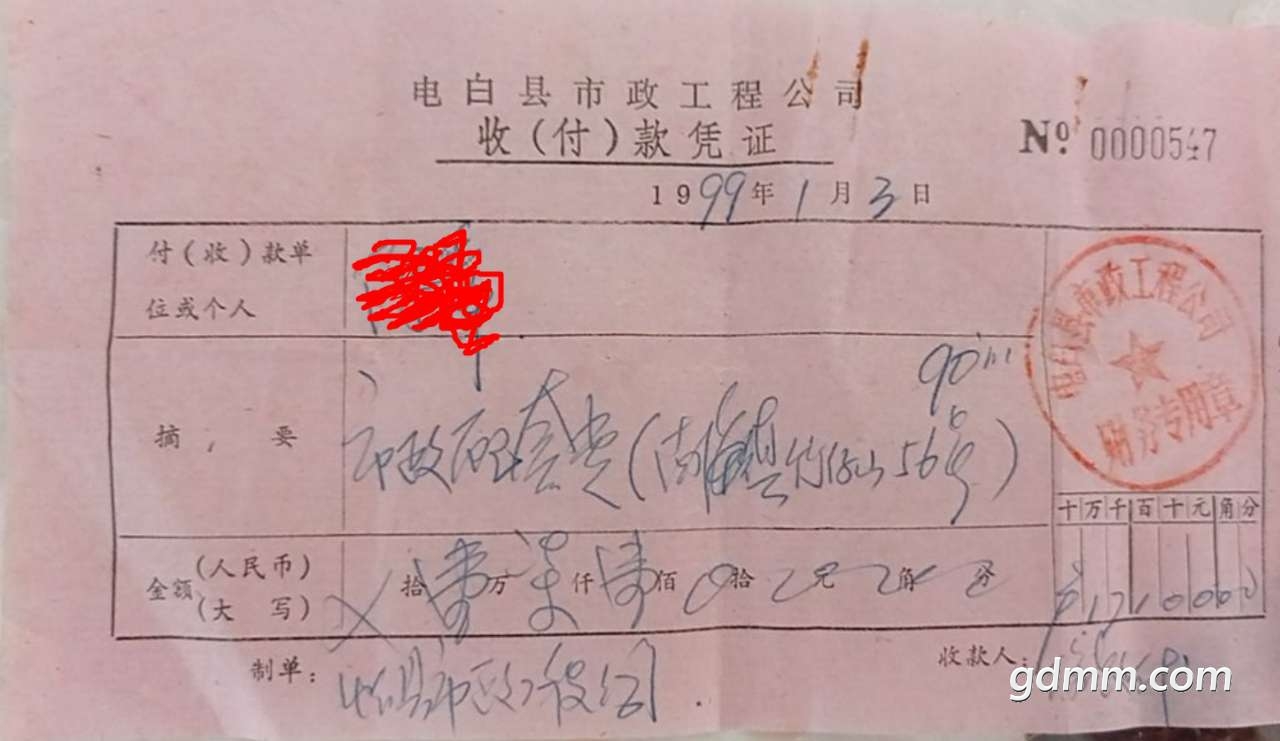 电白县市政工程公司
收(付)款凭证
№ 0000547
1999年1月3日
付(收)款单
位或个人
电白县市政工程公司
财务专用章
90m
摘,要
市政配套费(南海镇竹仔山56号)
十万千百十元角分
金额(人民币)(大写)
拾壹万柒仟壹佰0拾元角分
¥1710000
制单:
收款人:
gdmm.com